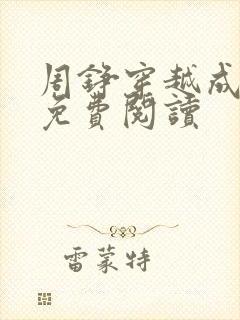 周錚穿越成
免費閱讀
雷蒙特